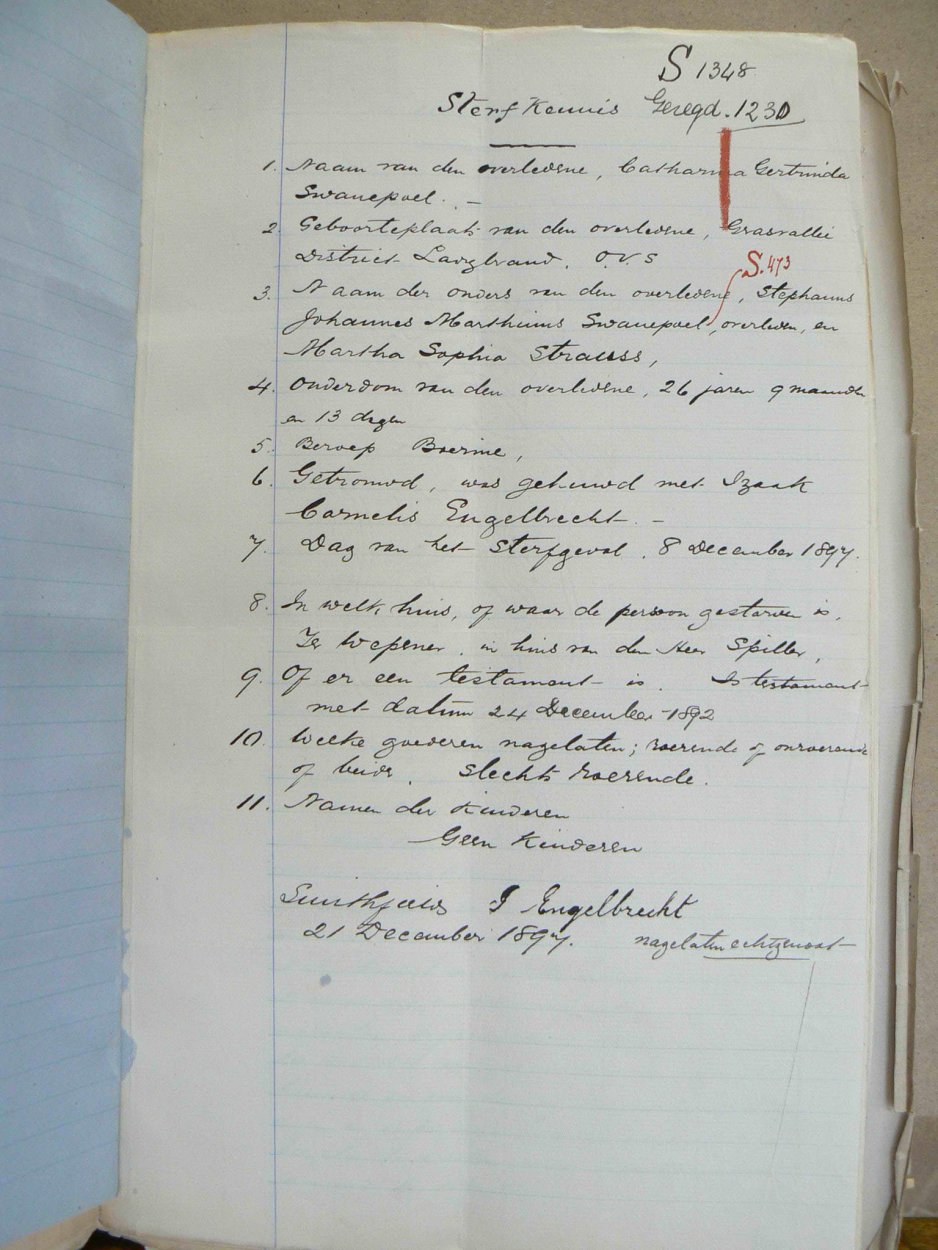 S 1348
Sterf Kennis Geregd. 1230
1. Naam van den overledene, Catharina Gertruida
Swanepoel. –
2. Geboorteplaats van den overledene, Grasvallei
District Ladybrand, O.V.S
S.473
3. Naam der ouders van den overledene, Stephanus
Johannes Marthinus Swanepoel, overleden, en
Martha Sophia Strauss,
4. Ouderdom van den overledene, 26 jaren 9 maanden
en 13 dagen
5. Beroep Boerine,
6. Getrouwd, was gehuwd met Izaak
Cornelis Engelbrecht. –
7. Dag van het sterfgeval. 8 December 1897.
8. In welk huis, of waar de persoon gestorven is,
Te Wepener, in huis van den Heer Spiller,
9. Of er een testament is. Is testament
met datum 24 December 1892
10. Welke goederen nagelaten; roerende of onroerende
of beide, slechts roerende.
11. Namen der Kinderen
Geen Kinderen
Smithfield I Engelbrecht
21 December 1897. nagelaten echtgenoot